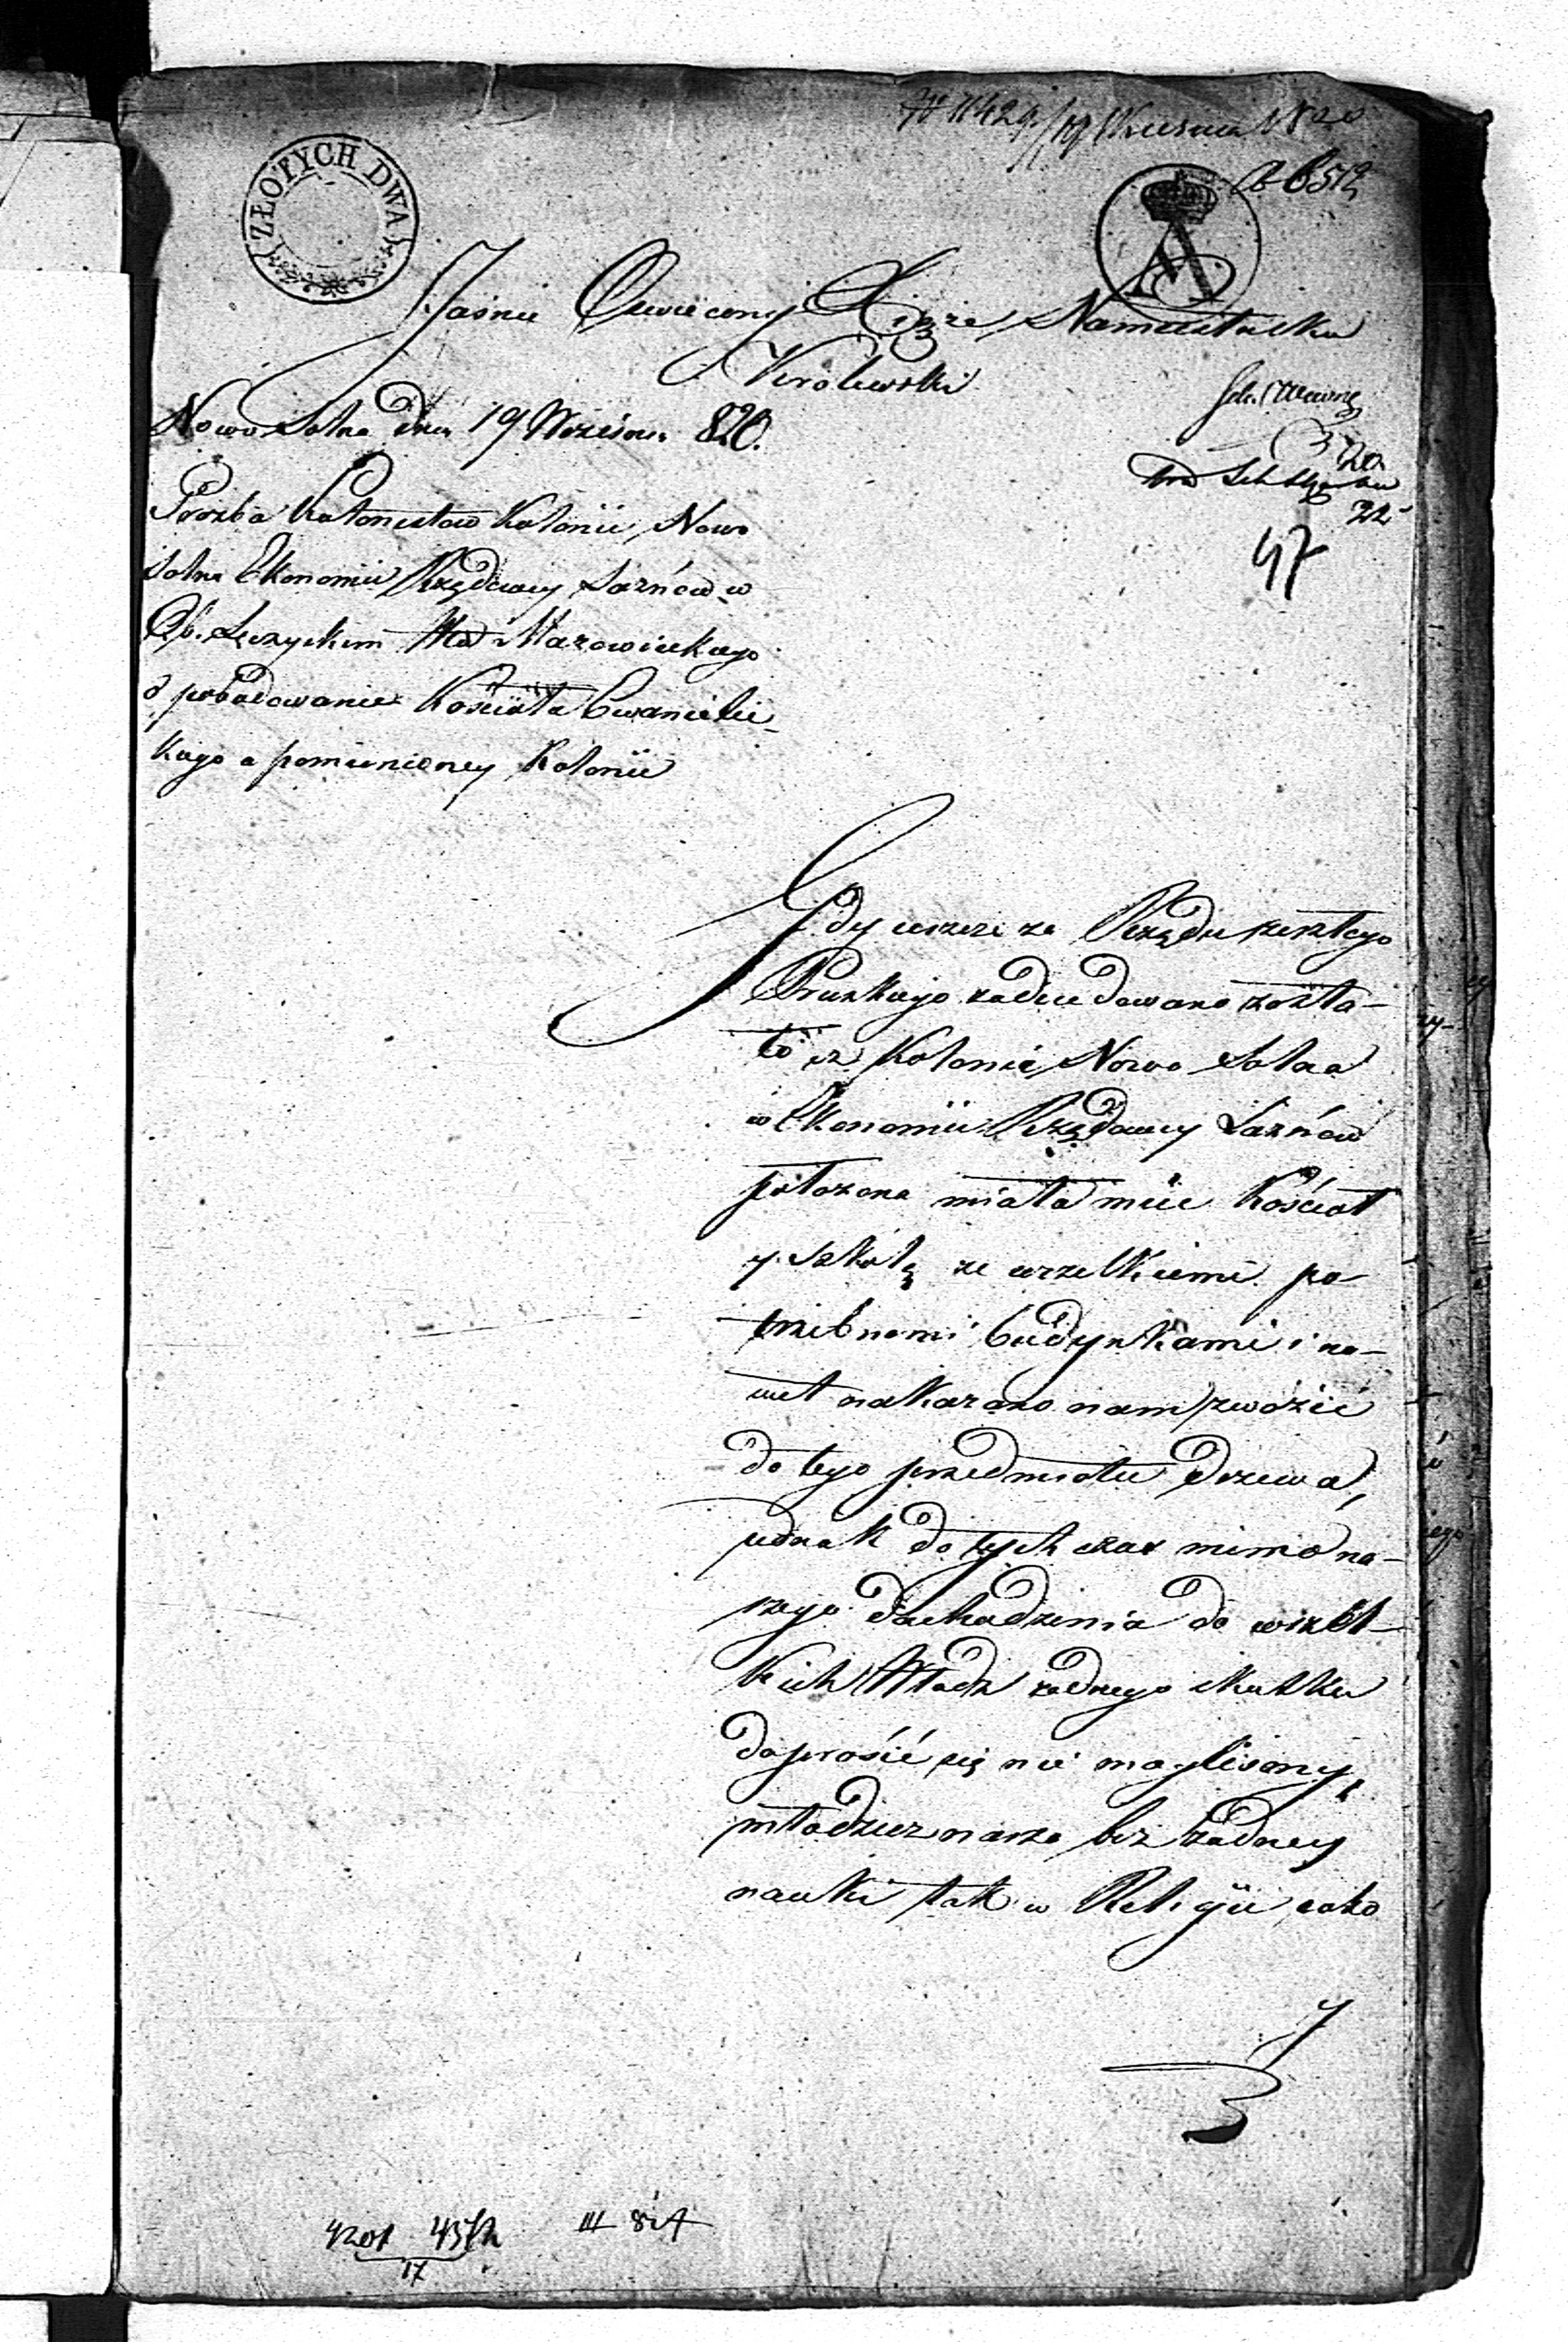 N 11429/19 Wrzesnia 1820
ZŁOTYCH DWA
Jaśnie Oswiecony Xiąże Namiestniku
Krolewski
Nowo Solna dnia 19 Września 820.
20
22
47
Prozba Kolonistow Kolonii Nowo
Solna Ekonomii Rządowey Łaznów w
Ob. Łęczyckim Wa Mazowieckiego
o pobudowanie Kościoła Ewanieli-
kiego a pomienioney Kolonii
Gdy ieszcze za Rządu zeszłego
Pruskiego zadecedowano zosta-
ło iż Kolonia Nowo Solna
w Ekonomii Rządowey Łaznów
położona miała mieć Kościoł
y Szkołę ze wszelkiemi po-
trzebnemi budynkami i na-
wet nakazano nam zwozić
do tego przedmiotu drzewa,
iednak do tych czas mimo na-
szego dochodzenia do wszel-
kich Władz żadnego skutku
doprosić się nie moglismy,
młodzież nasza bez żadney
nauki tak w Religii iako
4201 4512
17
III